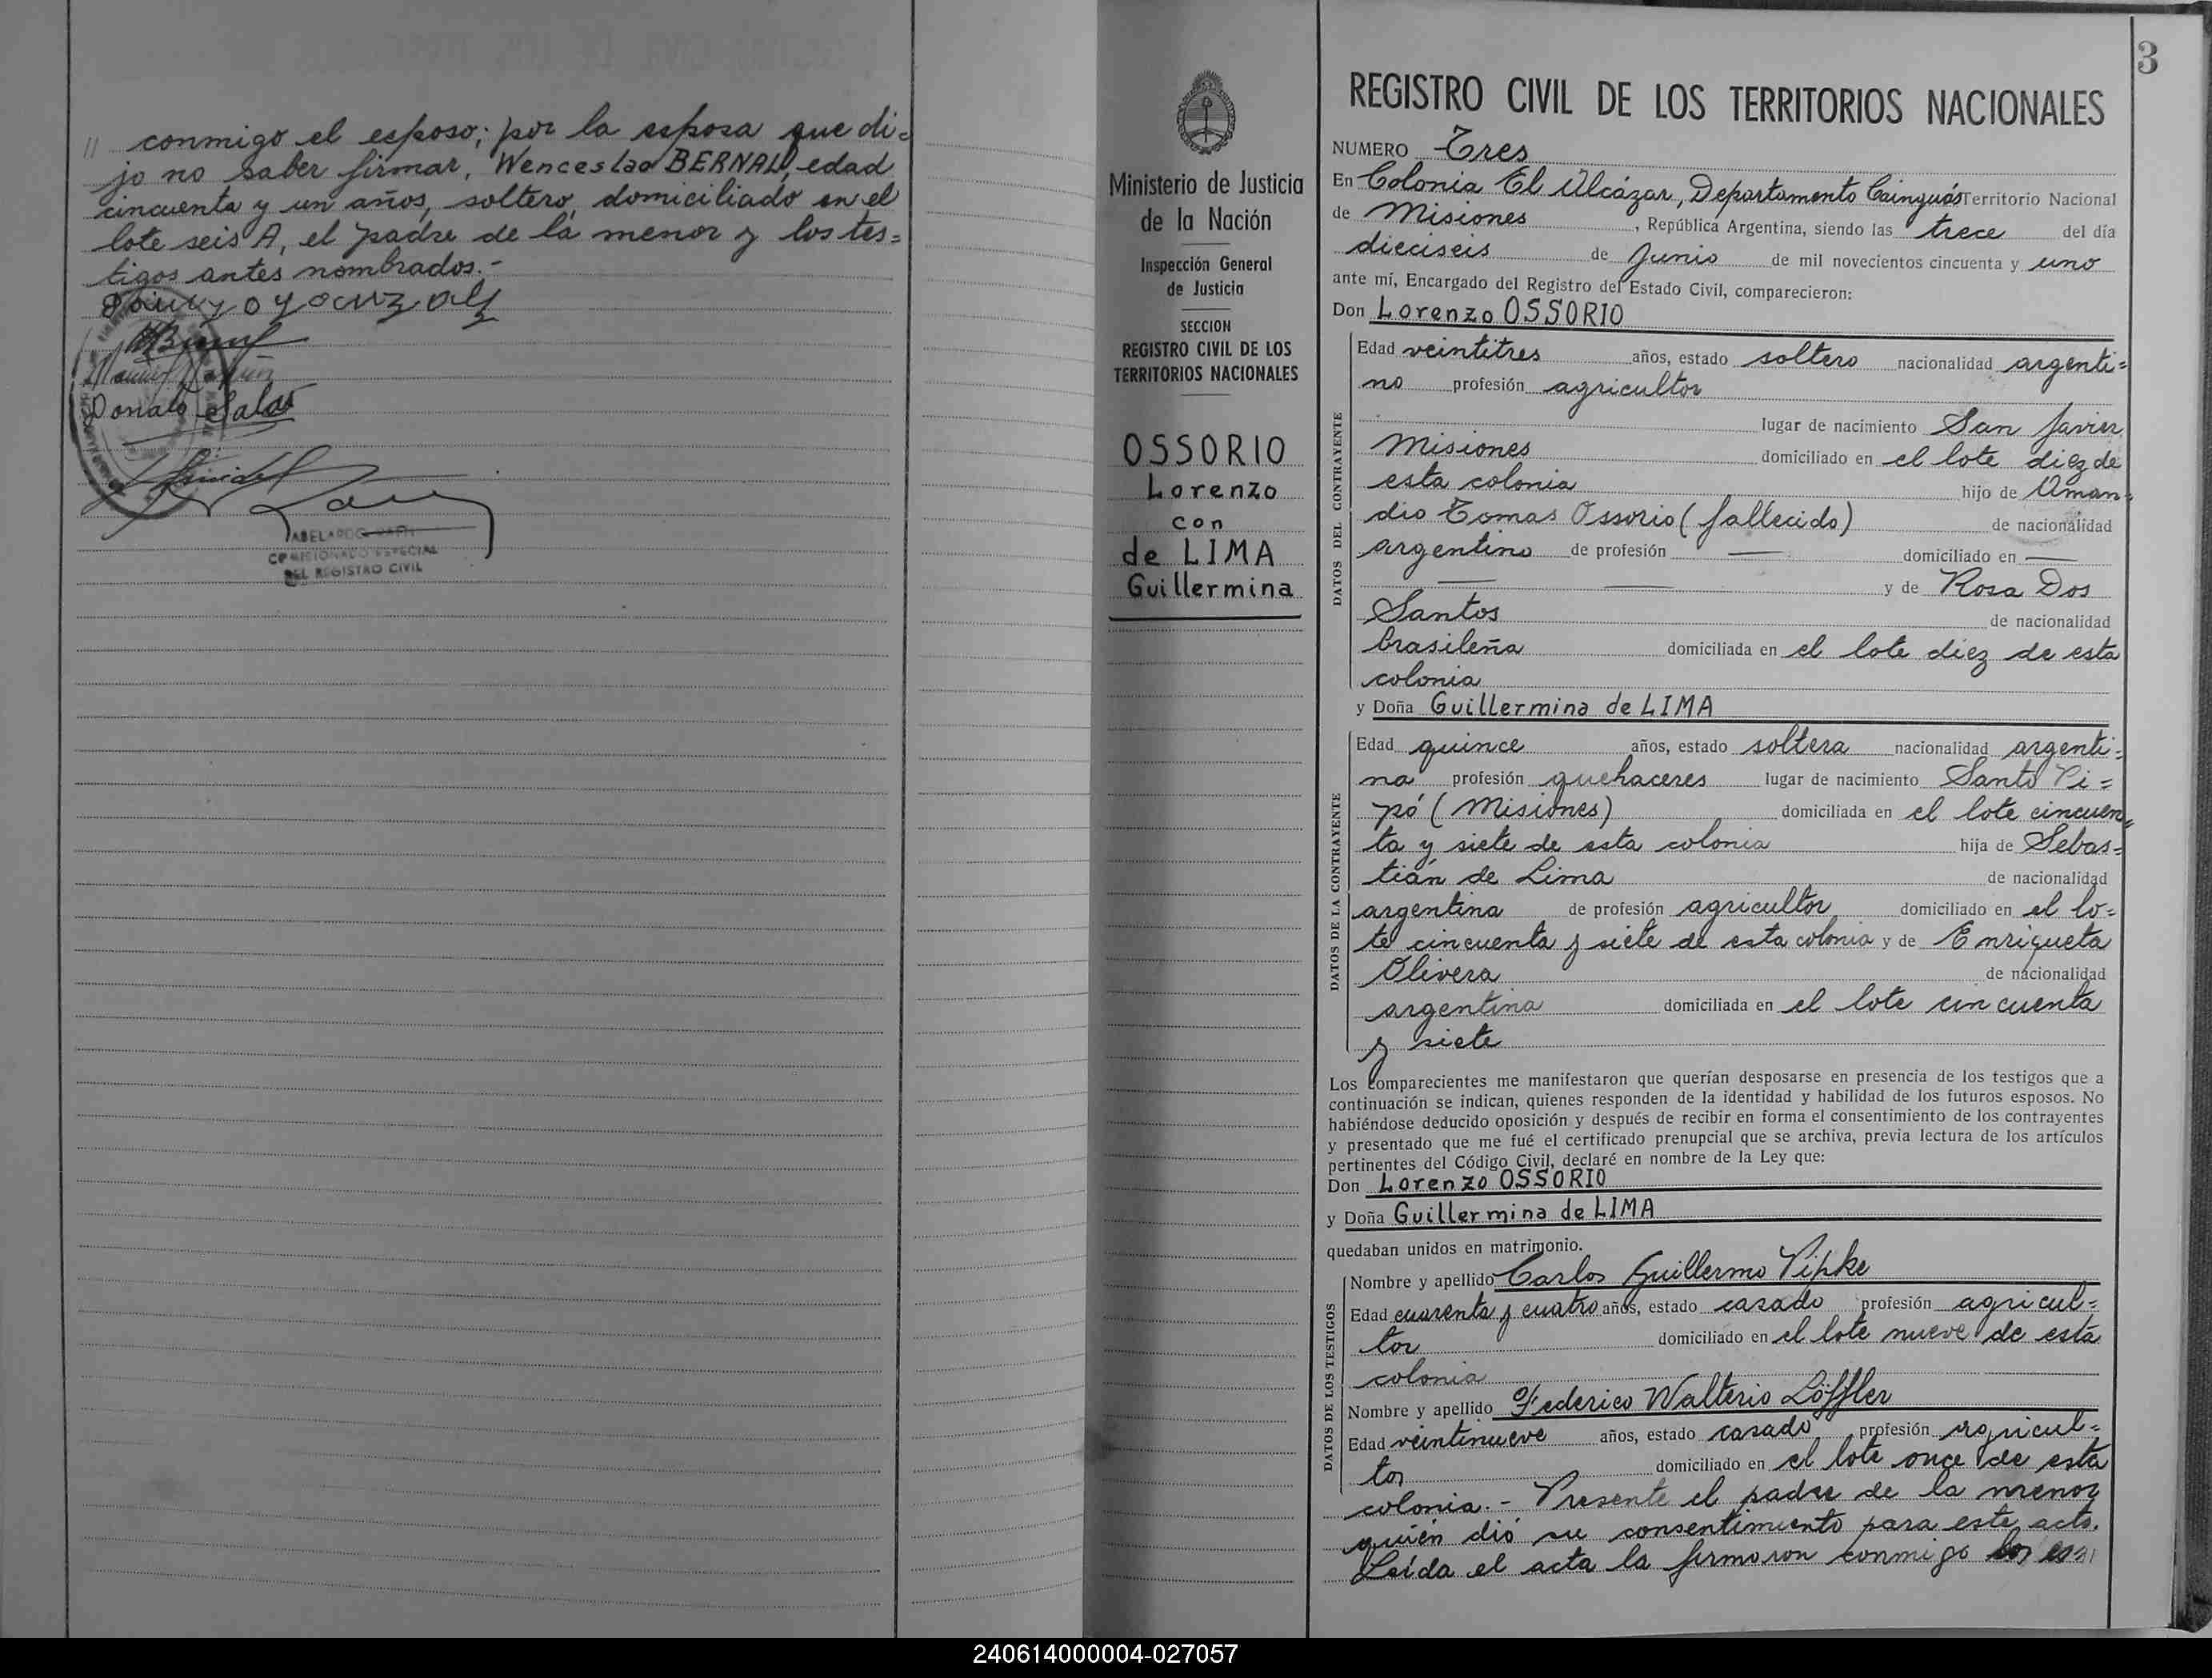 " conmigo el esposo; por la esposa que di=
jo no saber firmar, Wenceslao BERNAL, edad
cincuenta y un años, soltero, domiciliado en el
lote seis A, el padre de la menor y los tes=
tigos antes nombrados.-
Donato Salas
ABELARDO
COMISIONADO ESPECIAL
DEL REGISTRO CIVIL
3
Ministerio de Justicia
de la Nación
Inspección General
de Justicia
SECCION
REGISTRO CIVIL DE LOS
TERRITORIOS NACIONALES
OSSORIO
Lorenzo
con
de LIMA
Guillermina
REGISTRO CIVIL DE LOS TERRITORIOS NACIONALES
NUMERO Tres
En Colonia El Alcázar, Departamento Cainguás Territorio Nacional
de Misiones, República Argentina, siendo las trece del día
dieciseis de Junio de mil novecientos cincuenta y uno
ante mí, Encargado del Registro del Estado Civil, comparecieron:
Don Lorenzo OSSORIO
DATOS DEL CONTRAYENTE
Edad veintitres años, estado soltero nacionalidad argenti=
no profesión agricultor
lugar de nacimiento San Javier
Misiones domiciliado en el lote diez de
esta colonia hijo de Aman=
dio Tomas Ossorio (fallecido) de nacionalidad
argentino de profesión — domiciliado en —
— — y de Rosa Dos
Santos de nacionalidad
brasileña domiciliada en el lote diez de esta
colonia
y Doña Guillermina de LIMA
DATOS DE LA CONTRAYENTE
Edad quince años, estado soltera nacionalidad argenti=
na profesión quehaceres lugar de nacimiento Santo Pi=
pó (Misiones) domiciliada en el lote cincuen=
ta y siete de esta colonia hija de Sebas=
tián de Lima de nacionalidad
argentina de profesión agricultor domiciliado en el lo=
te cincuenta y siete de esta colonia y de Enriqueta
Olivera de nacionalidad
argentina domiciliada en el lote cincuenta
y siete
Los comparecientes me manifestaron que querían desposarse en presencia de los testigos que a
continuación se indican, quienes responden de la identidad y habilidad de los futuros esposos. No
habiéndose deducido oposición y después de recibir en forma el consentimiento de los contrayentes
y presentado que me fué el certificado prenupcial que se archiva, previa lectura de los artículos
pertinentes del Código Civil, declaré en nombre de la Ley que:
Don Lorenzo OSSORIO
y Doña Guillermina de LIMA
quedaban unidos en matrimonio.
DATOS DE LOS TESTIGOS
Nombre y apellido Carlos Guillermo Pipke
Edad cuarenta y cuatro años, estado casado profesión agricul=
tor domiciliado en el lote nueve de esta
colonia
Nombre y apellido Federico Walterio Löffler
Edad veintinueve años, estado casado profesión agricul=
tor domiciliado en el lote once de esta
colonia.- Presente el padre de la menor
quién dió su consentimiento para este acto.
Leída el acta la firmaron conmigo los es
240614000004-027057